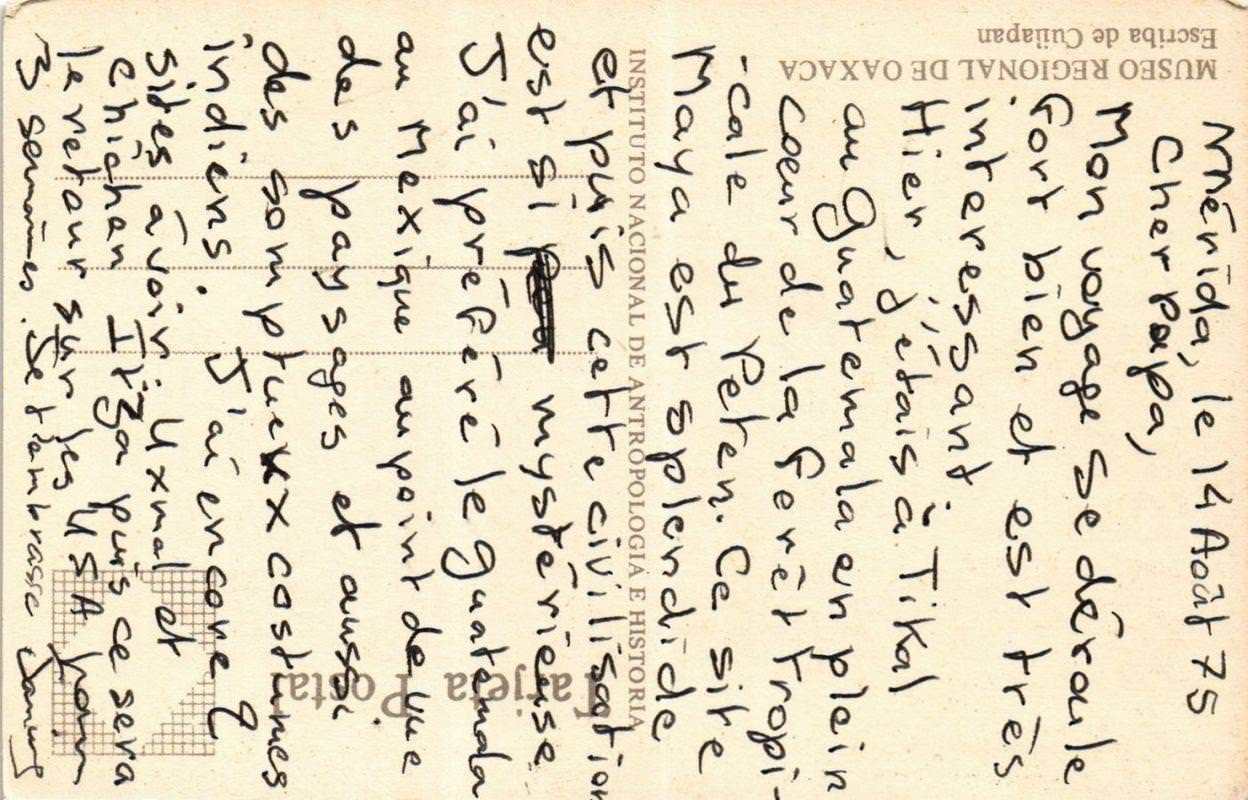 MUSEO REGIONAL DE OAXACA
Escriba de Cuilapan
INSTITUTO NACIONAL DE ANTROPOLOGIA E HISTORIA
Tarjeta Postal
Mérida, le 14 Août 75
Cher Papa,
Mon voyage se déroule
fort bien et est très
interessant.
Hier, j'étais à Tikal
au Guatemala en plein
coeur de la forêt tropi-
-cale du Peten. Ce site
Maya est splendide
et puis cette civilisation
est si mystérieuse
J'ai préféré le guatemala
au Mexique au point de vue
des paysages et aussi
des somptueux costumes
indiens. J'ai encore 2
sites à voir: Uxmal et
Chichen Itza puis ce sera
le retour sur les USA pour
3 semaines. Je t'embrasse